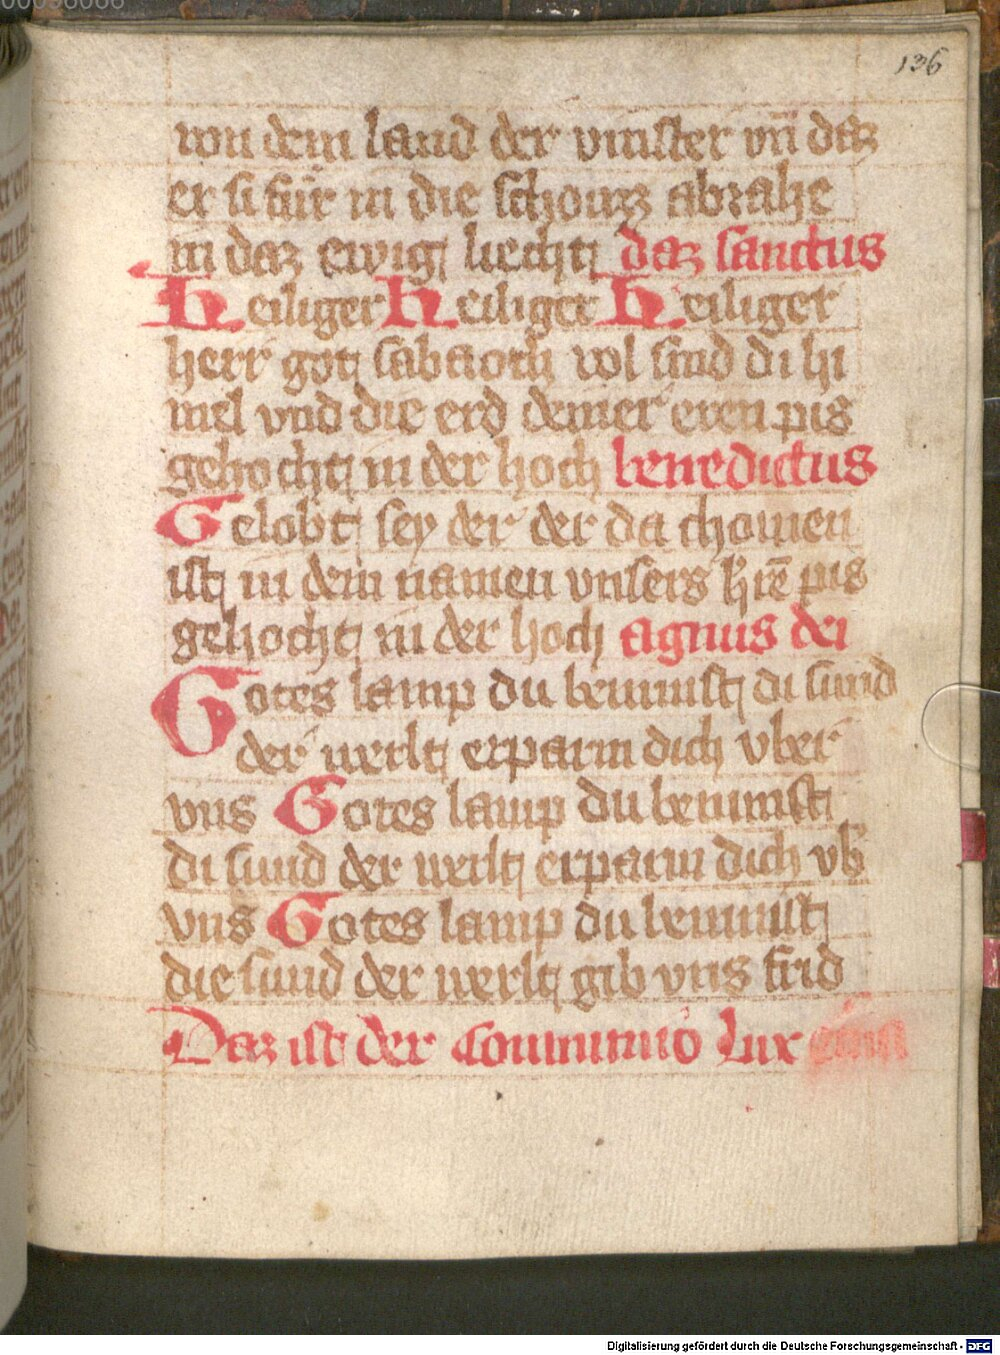 136
von dem land der vinster vn̄ daz
er si fur in die schouzz abrahe
in daz ewig liecht daz sanctus
Heiliger Heiliger Heiliger
herr got sabaoth vol sind di hi
mel vnd die erd deiner eren pis
gehocht in der hoch benedictus
Gelobt sey der der da chomen
ist in dem namen vnsers h're pis
gehocht in der hoch agnus dei
Gotes lamp du benimst di sund
der werlt erparm dich vber
vns Gotes lamp du benimst
di sund der werlt erparm dich vb'
vns Gotes lamp du benimst
die sund der werlt gib vns frid
Daz ist der Communio Lux
Digitalisierung gefördert durch die Deutsche Forschungsgemeinschaft - DFG